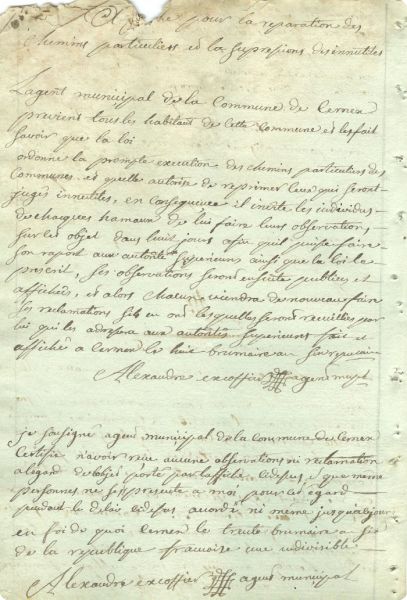 pour la reparation des
chemins particuliers et la supresions des innutiles
L'agent municipal de la Commune de Cernex
previent tous les habitant de cette commune et les fait
savoir que la loi
ordonne la prompte execution des chemins particuliers des
Communes et quelle autorise de reprimer ceux qui seront
jugés innutiles, en consequence il invite les individus
de chaques hamaux de lui faire leurs observations
sur cet objet dans huit jours afin quil puisse faire
son raport aux autorités superieurs ainsi que la loi le
prescrit, ses observations seront ensuite publiees et
affichée, et alors chacun viendra de nouveau faire
ses reclamations sil en ont lesquelles seront receuillies par
lui qui les adressera aux autorités superieurs fait et
affiché a cernex le huit brumaire an six
Alexandre excoffier agent mupl
je sousigné agent municipal de la Commune de Cernex
Certifie n'avoir recue aucune observations ni reclamation
a legard de lobjet porté par laffiche cidesus et que meme
personnes ne sest presenté a moi pour cet égard
pendant le delais cidesus acordé ni meme jusqua ce jour
en foi de quoi cernex le trente brumaire an six
de la republique francoise une indivisible
Alexandre excoffier agent municipal